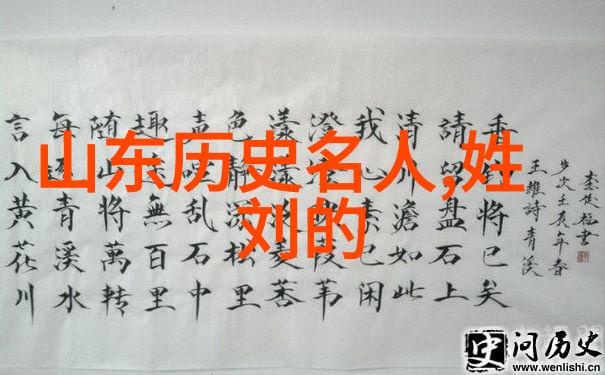 山东历史名人,姓
刘的
言入黄花川
每逐青溪水
随山将萬转
趣途無百里
声喧乱石中
色静深松里
漾漾泛菱荇
澄澄映葭苇
我心素已闲
清川澹如此
請留盘石上
垂钓将已矣
王维詩青溪
岁次壬辰年春
问历史
www.wenlishi.cn